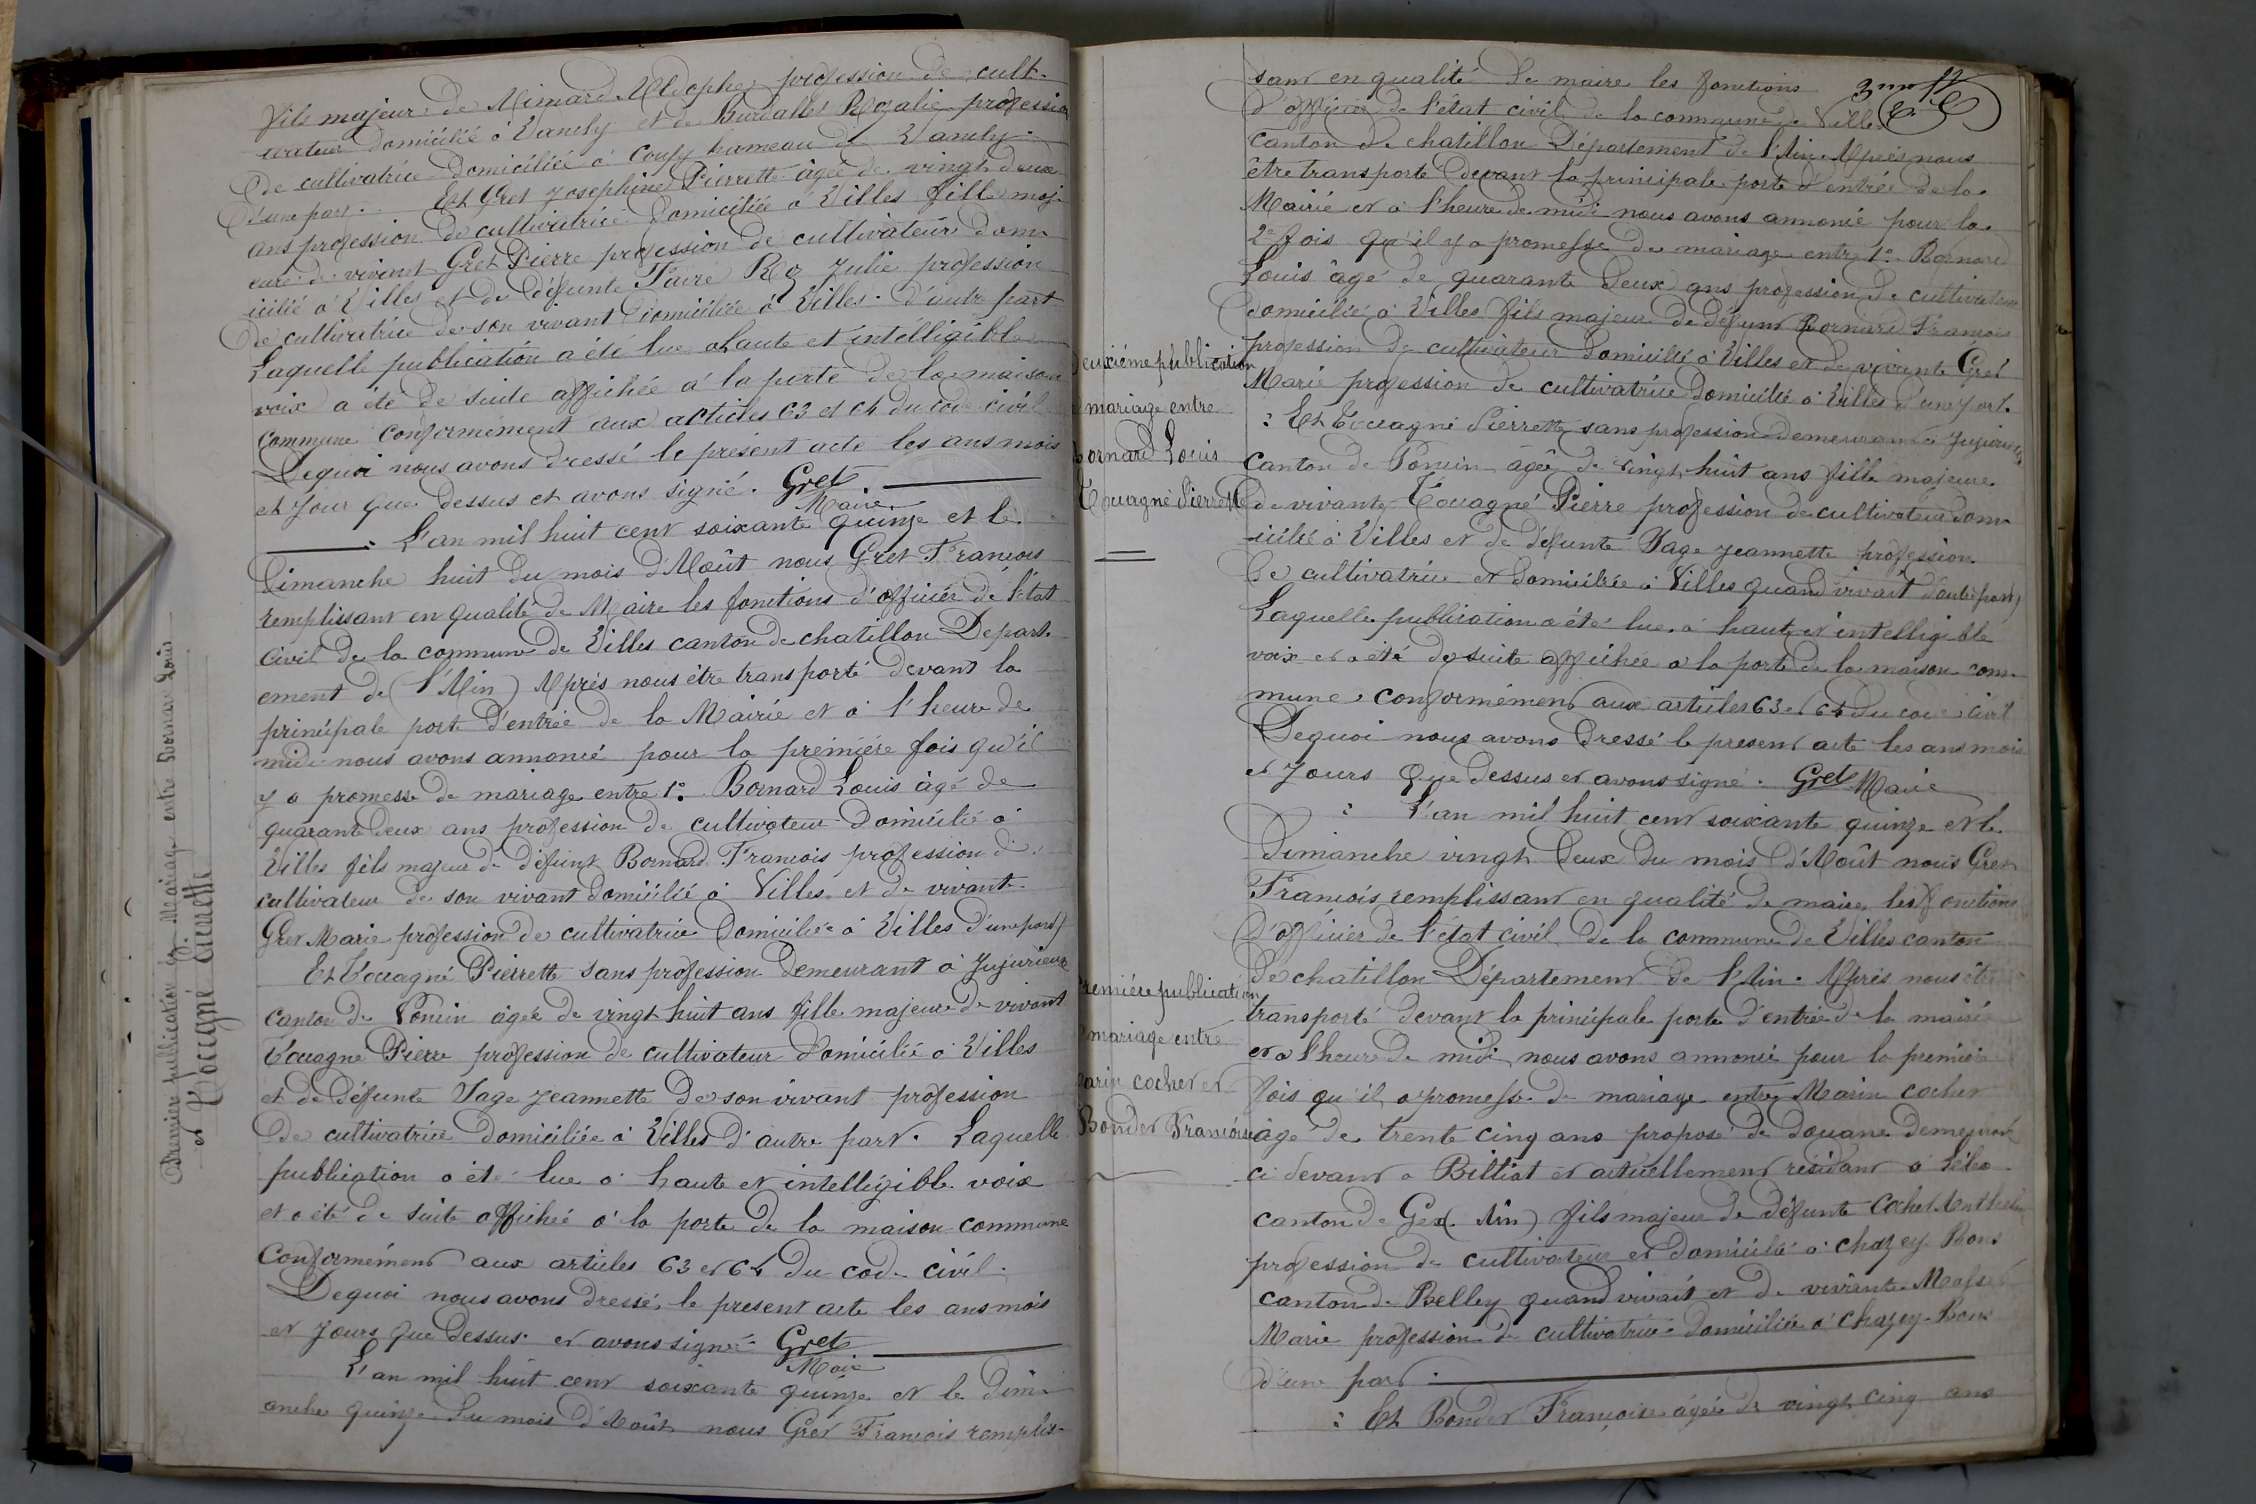 fils majeur de Mimard profession de cult-
ivateur domicilié à Vanchy et de Burdallet Rozalie profession
de cultivatrice domiciliée à Coupy hameau de Vanchy
d'une part. Et Gret Joséphine Pierrette âgée de vingt deux
ans profession de cultivatrice domiciliée à Villes fille maj-
eure de vivant Gret Pierre profession de cultivateur dom-
icilié à Villes et de défunte Favre Julie profession
de cultivatrice de son vivant domiciliée à Villes. d'autre part
Laquelle publication a été lue à haute et intelligible
voix a été de suite affichée à la porte de la maison
commune conformément aux articles 63 et 64 du code civil
Dequoi nous avons dressé le présent acte les ans mois
et jour que dessus et avons signé. Gret
Maire
L'an mil huit cent soixante quinze et le
Dimanche huit du mois d'Août nous Gret François
remplissant en qualité de Maire les fonctions d'officier de l'état
civil de la commune de Villes canton de chatillon Départ-
ement de (l'Ain) Après nous être transporté devant la
principale port d'entrée de la Mairie et à l'heure de
midi nous avons annoncé pour la première fois qu'il
y a promesse de mariage entre 1° Bornard Louis âgé de
quarante deux ans profession de cultivateur domicilié à
Villes fils majeur de défunt Bornard François profession de
cultivateur de son vivant domicilié à Villes et de vivante
Gret Marie profession de cultivatrice domiciliée à Villes d'une part
Et Covagné Pierrette sans profession demeurant à Jujurieux
canton de Poncin âgée de vingt huit ans fille majeure de vivant
Covagné Pierre profession de cultivateur domicilié à Villes
et de défunte Vage Jeannette de son vivant profession
de cultivatrice domiciliée à Villes d'autre part. Laquelle
publication a été lue à haute et intelligible voix
et a été de suite affichée à la porte de la maison commune
Conformément aux articles 63 et 64 du code civil.
Dequoi nous avons dressé le present acte les ans mois
et jours que dessus et avons signé Gret
Maire
L'an mil huit cent soixante quinze et le dim-
anche quinze du mois d'Août nous Gret François remplis-
Première publication de Mariage entre Bornard Louis
et Covagné Pierrette
sant en qualité de maire les fonctions
d'officier de l'état civil de la commune de Villes
canton de chatillon Département de l'Ain. Après nous
être transporté devant la principale porte d'entrée de la
Mairie et à l'heure de midi nous avons annoncé pour la
2e fois qu'il y a promesse de mariage entre 1° Bornard
Louis âgé de quarante deux ans profession de cultivateur
domicilié à Villes fils majeur de défunt Bornard François
profession de cultivateur domicilié à Villes et de vivante Gret
Marie profession de cultivatrice domiciliée à Villes d'une part.
Et Covagné Pierrette sans profession demeurant à Jujurieux
canton de Poncin âgée de vingt huit ans fille majeure
de vivante Covagné Pierre profession de cultivateur dom-
icilié à Villes et de défunte Vage Jeannette profession
de cultivatrice et domiciliée à Villes quand vivait d'autre part
Laquelle publication a été lue à haute et intelligible
voix et a été de suite affichée à la porte de la maison com-
mune, conformément aux articles 63 et 64 du code civil
Dequoi nous avons dressé le present acte les ans mois
et Jours que dessus et avons signé. Gret Maire
L'an mil huit cent soixante quinze et le
Dimanche vingt deux du mois d'Août nous Gret
François remplissant en qualité de maire les fonctions
d'officier de l'état civil de la commune de Villes canton
de chatillon Département de l'Ain. Après nous être
transporté devant la principale porte d'entrée de la mairie
et à l'heure de midi nous avons annoncé pour la première
fois qu'il a promesse de mariage entre Marin cochet
âgé de trente cinq ans préposé de douane demeurant
ci devant à Billiat et actuellement résidant à Lélex
canton de Gex (Ain) fils majeur de défunte cochet
profession de cultivateur et domicilié à Chazey Bons
canton de Belley quand vivait et de vivante
Marie profession de cultivatrice domiciliée à Chazey-Bons
d'une part.
Et Bondet Françoise âgée de vingt cinq ans
deuxième publication
mariage entre
Bornard Louis
Covagné Pierrette
Première publication
mariage entre
marin cochet et
Bondet Françoise